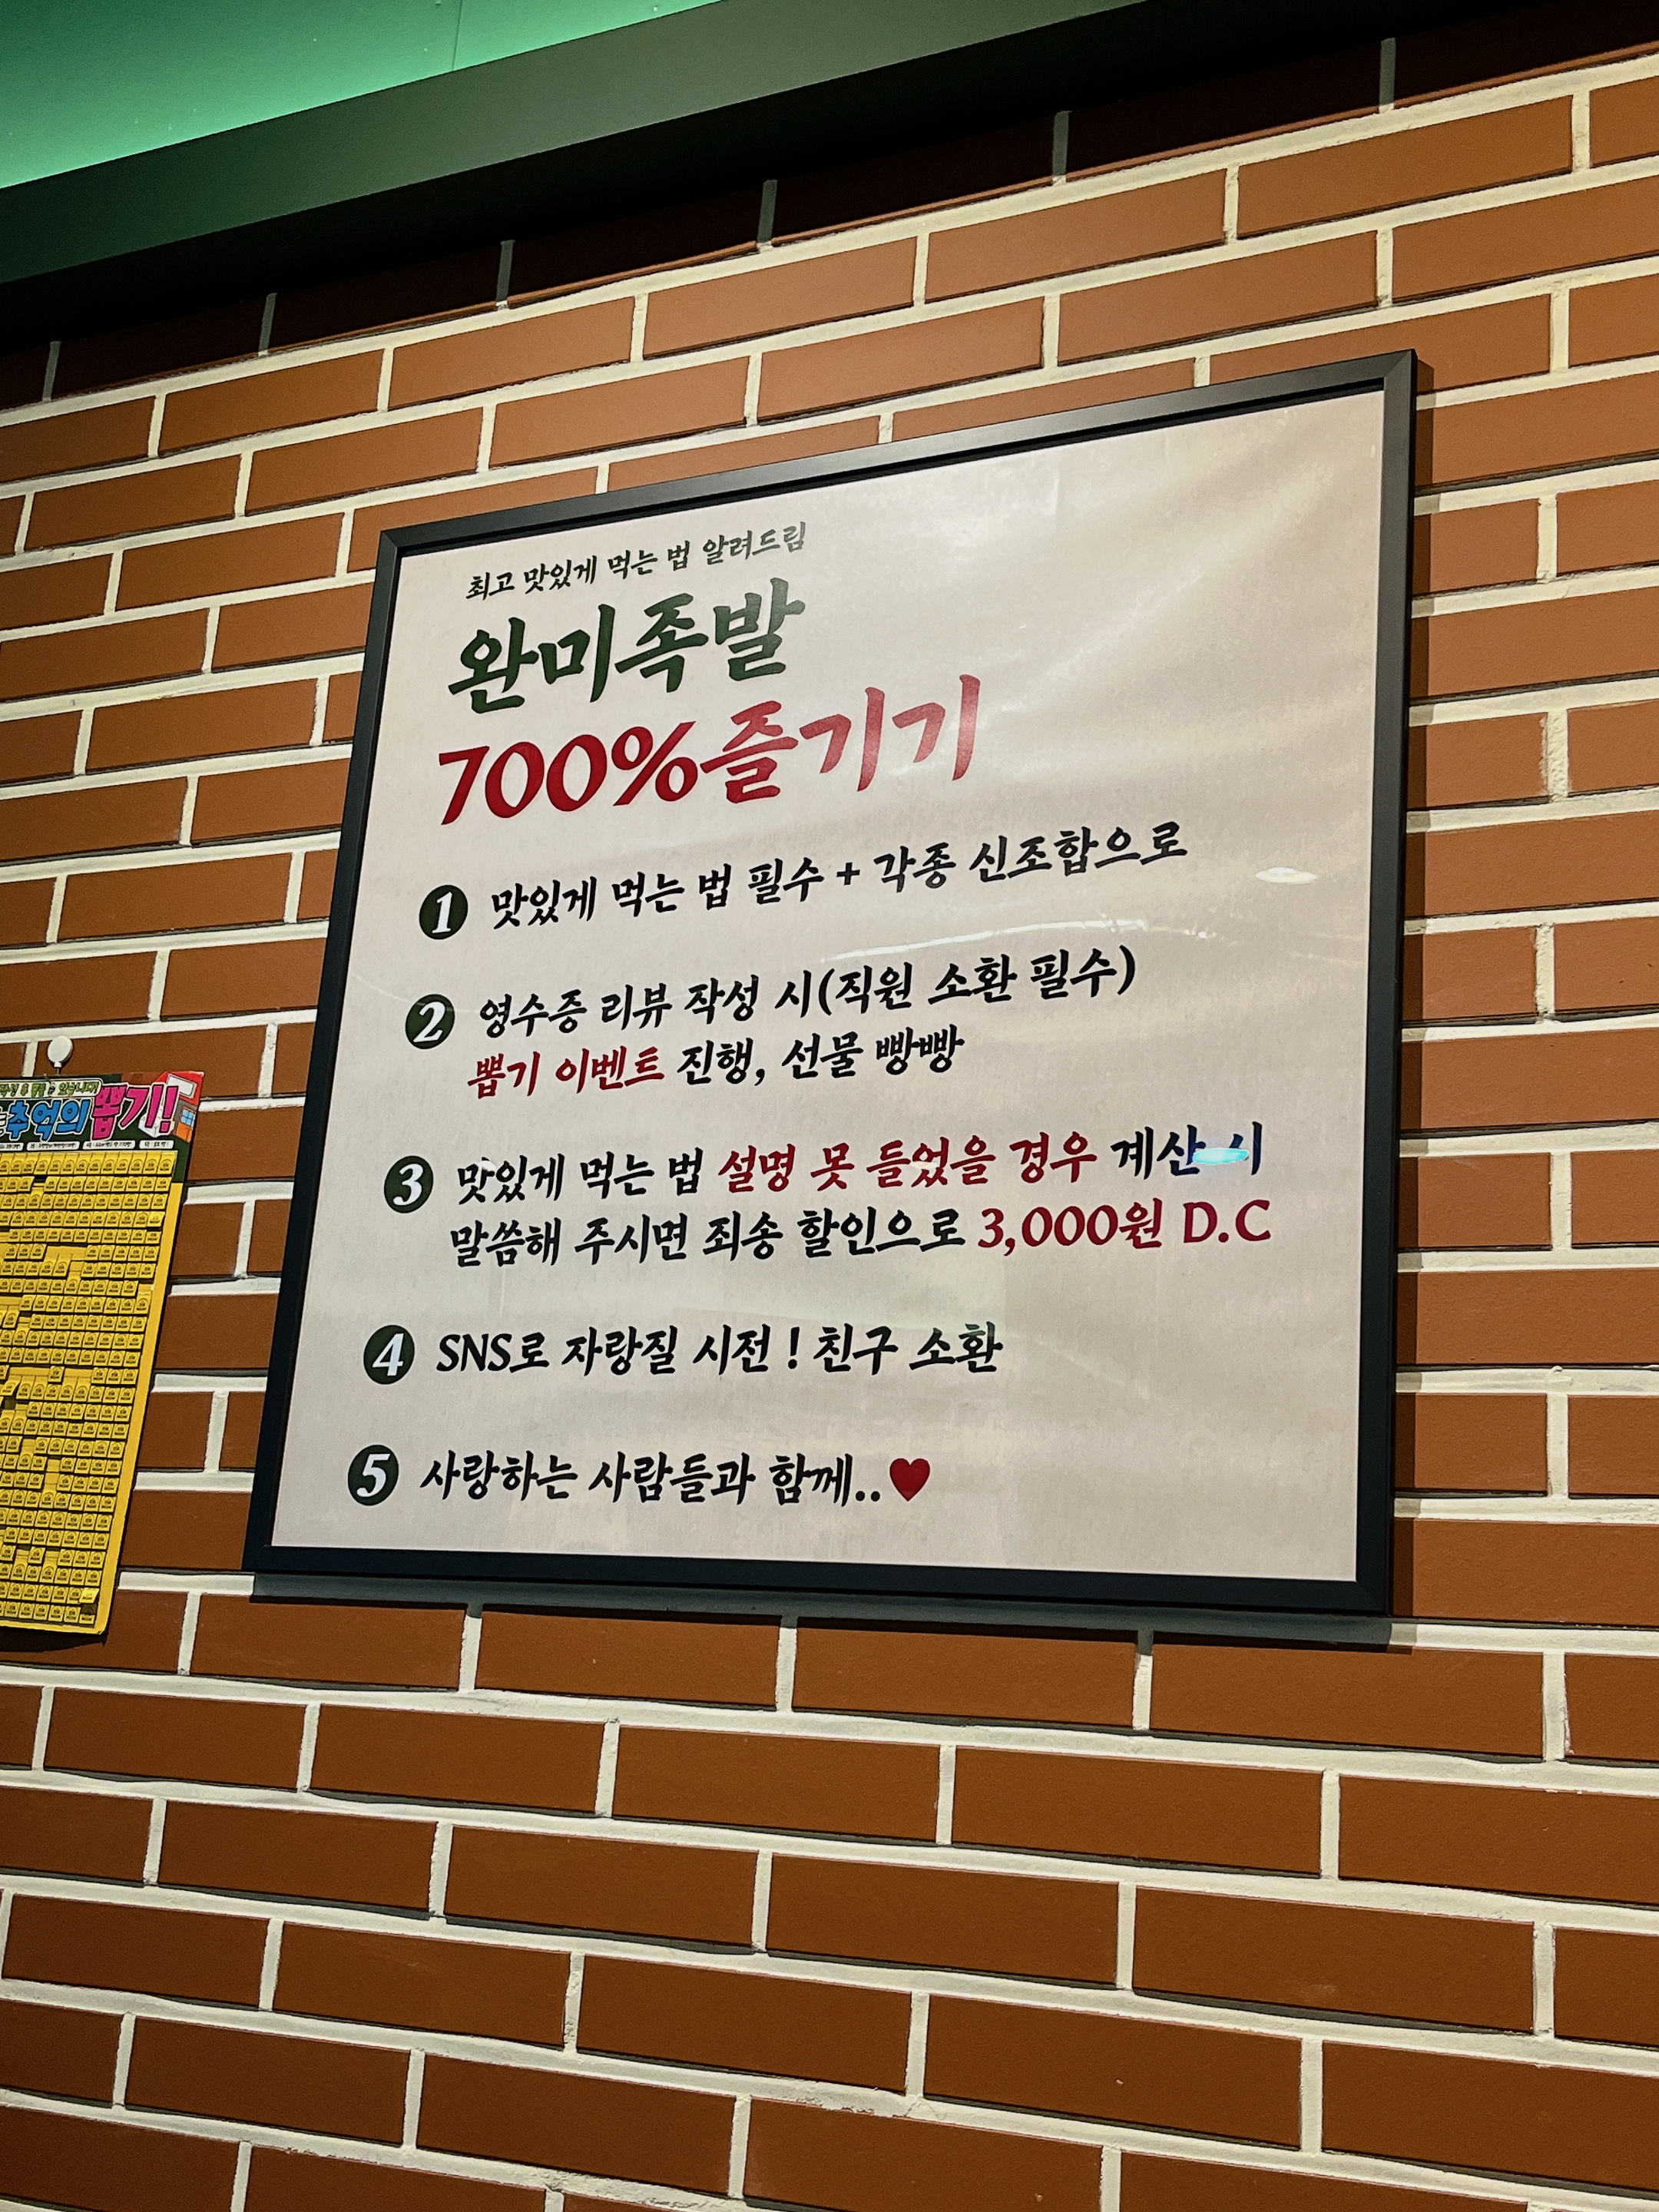 최고 맛있게 먹는 법 알려드림
완미족발
700%즐기기
1 맛있게 먹는 법 필수 + 각종 신조합으로
2 영수증 리뷰 작성 시(직원 소환 필수)
뽑기 이벤트 진행, 선물 빵빵
3 맛있게 먹는 법 설명 못 들었을 경우 계산 시
말씀해 주시면 죄송 할인으로 3,000원 D.C
4 SNS로 자랑질 시전 ! 친구 소환
5 사랑하는 사람들과 함께..♥
추억의 뽑기!